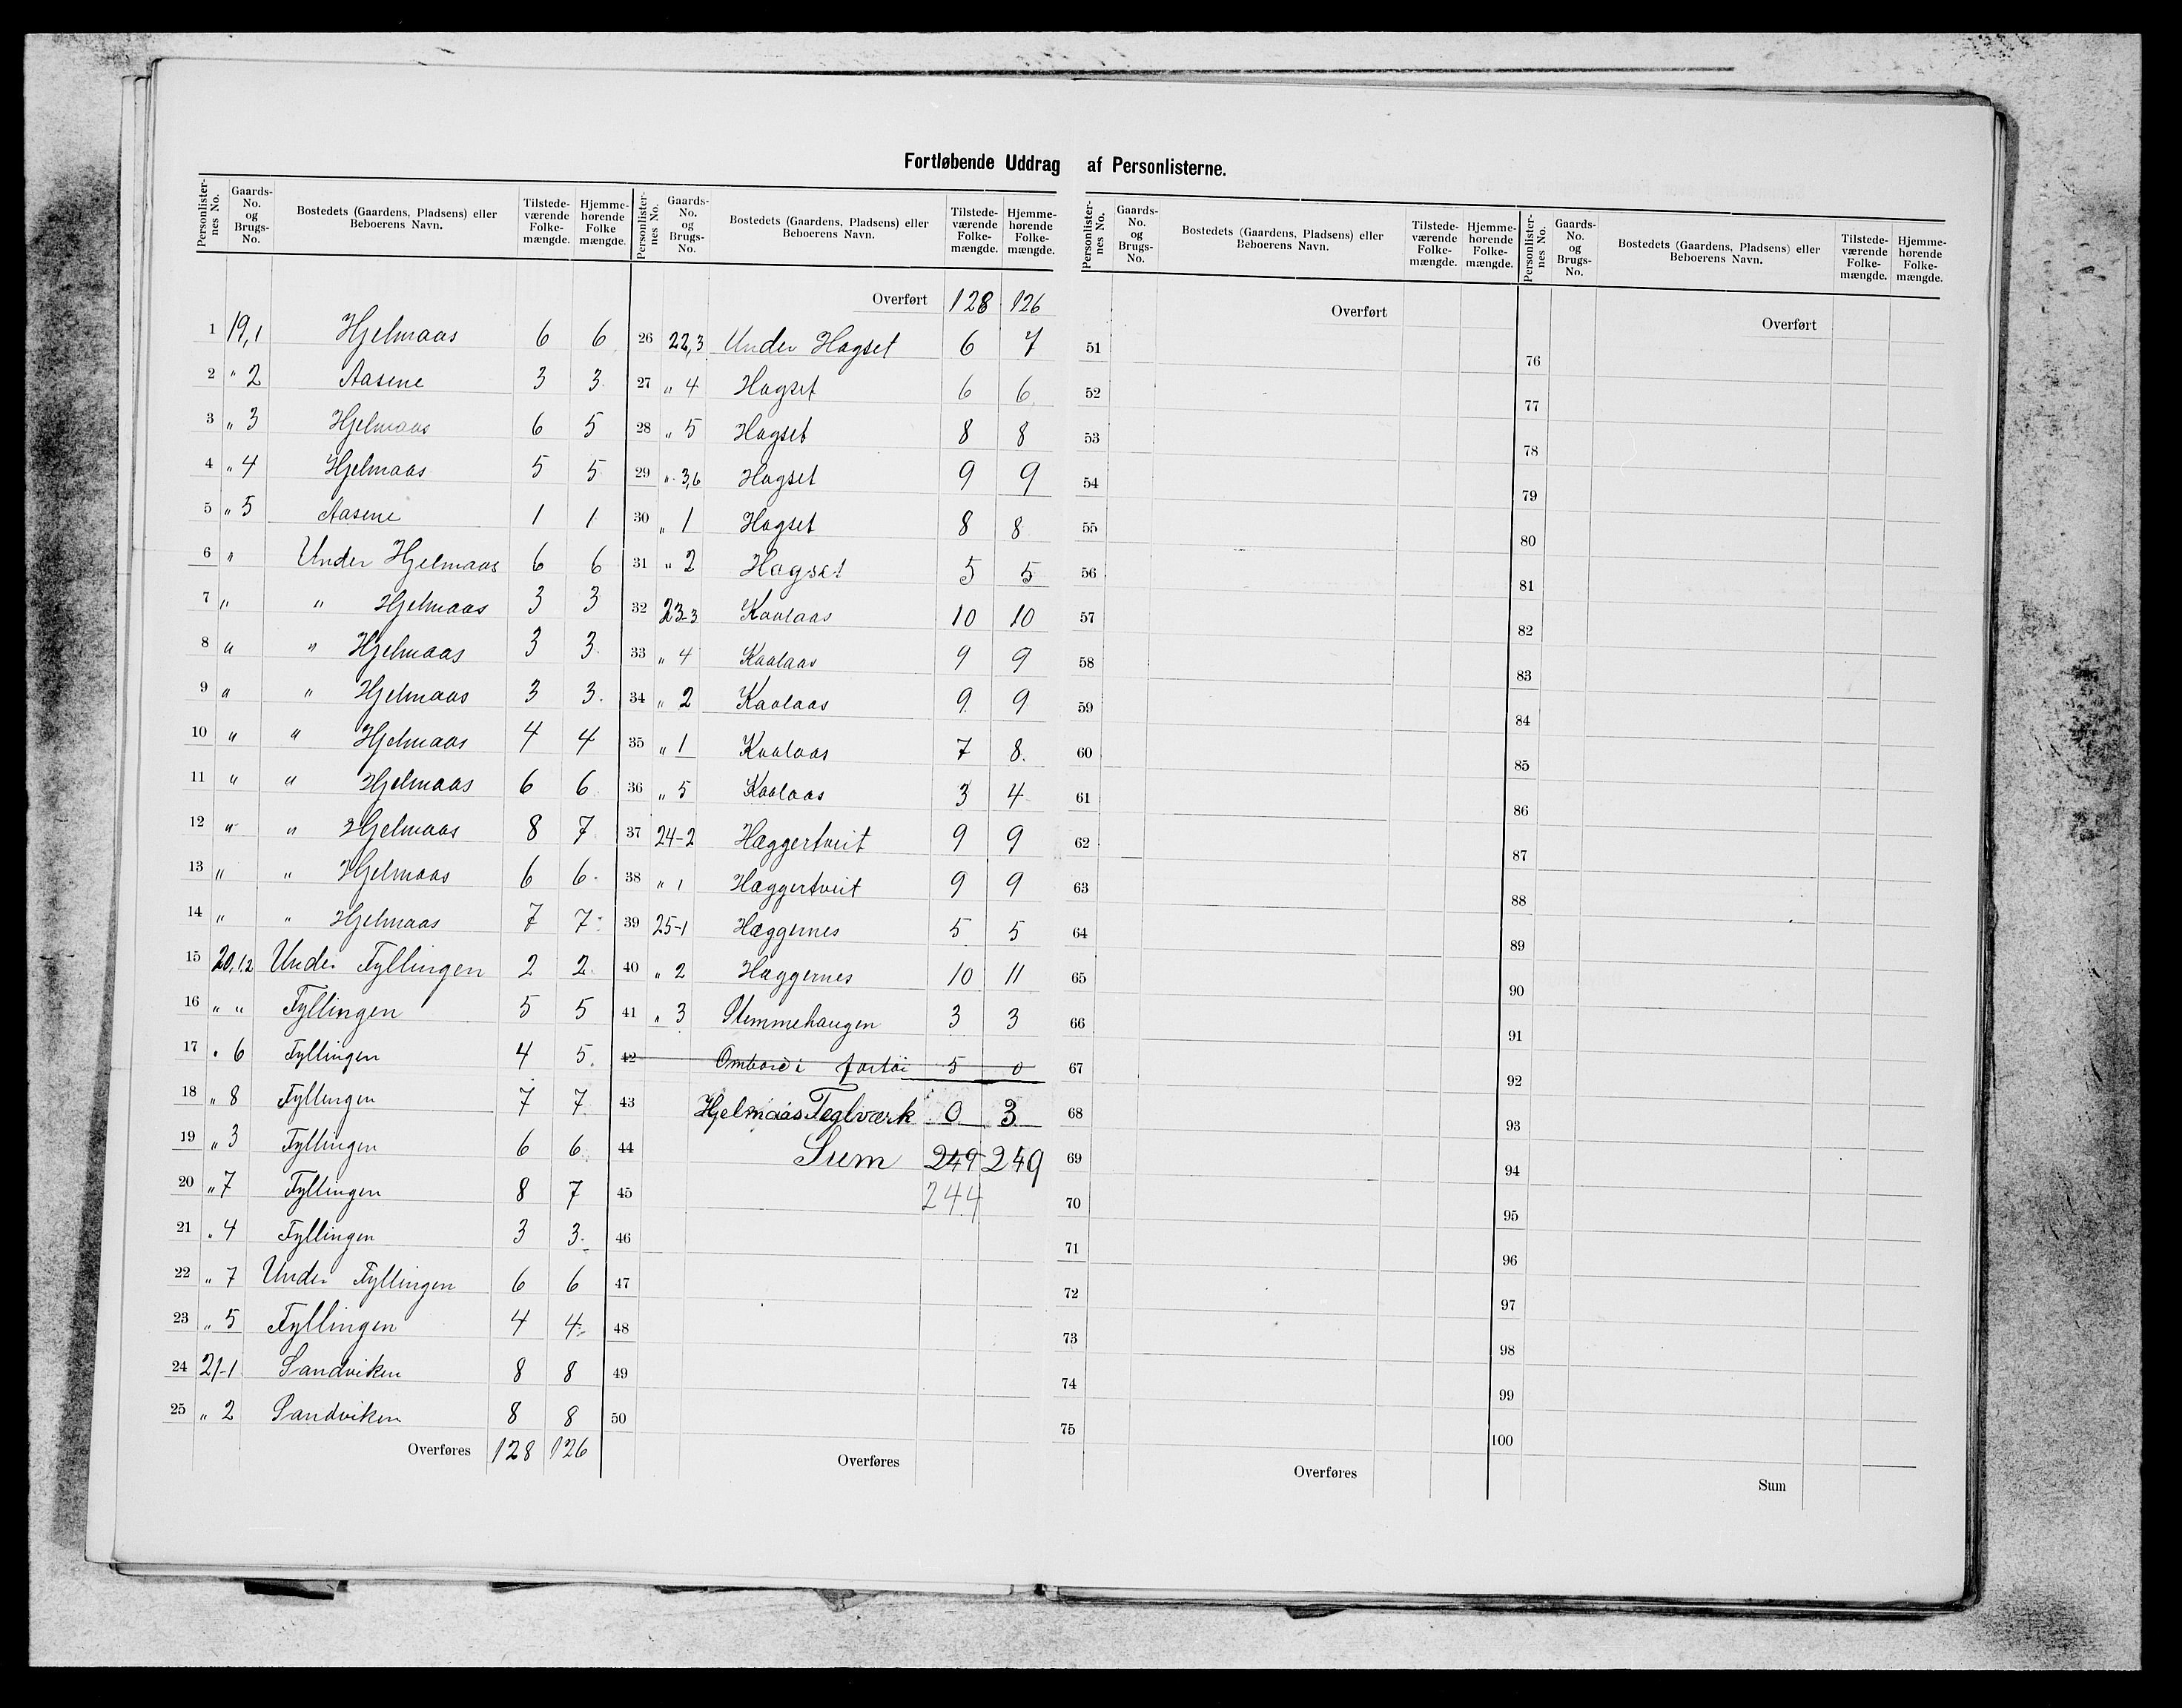 Fortløbende Uddrag af Personlisterne.
Personlister-nes No. | Gaards-No. og Brugs-No. | Bostedets (Gaardens, Pladsens) eller Beboerens Navn. | Tilstede-værende Folke-mængde. | Hjemme-hørende Folke mængde.
1 19,1 Hjelmaas 6 6
2 " 2 Aasene 3 3
3 " 3 Hjelmaas 6 5
4 " 4 Hjelmaas 5 5
5 " 5 Aasene 1 1
6 " Under Hjelmaas 6 6
7 " " Hjelmaas 3 3
8 " " Hjelmaas 3 3
9 " " Hjelmaas 3 3
10 " " Hjelmaas 4 4
11 " " Hjelmaas 6 6
12 " " Hjelmaas 8 7
13 " " Hjelmaas 6 6
14 " " Hjelmaas 7 7
15 20,1,2 Under Fyllingen 2 2
16 " " Fyllingen 5 5
17 " 6 Fyllingen 4 5
18 " 8 Fyllingen 7 7
19 " 3 Fyllingen 6 6
20 " 7 Fyllingen 8 7
21 " 4 Fyllingen 3 3
22 " 7 Under Fyllingen 6 6
23 " 5 Fyllingen 4 4
24 21-1 Sandviken 8 8
25 " 2 Sandviken 8 8
Overføres 128 126
Personlister-nes No. | Gaards-No. og Brugs-No. | Bostedets (Gaardens, Pladsens) eller Beboerens Navn. | Tilstede-værende Folke-mængde. | Hjemme-hørende Folke-mængde.
Overført 128 126
26 22,3 Under Hagset 6 7
27 " 4 Hagset 6 6
28 " 5 Hagset 8 8
29 " 3,6 Hagset 9 9
30 " 1 Hagset 8 8
31 " 2 Hagset 5 5
32 23-3 Kaalaas 10 10
33 " 4 Kaalaas 9 9
34 " 2 Kaalaas 9 9
35 " 1 Kaalaas 7 8
36 " 5 Kaalaas 3 4
37 24-2 Hæggertveit 9 9
38 " 1 Hæggertveit 9 9
39 25-1 Hæggernes 5 5
40 " 2 Hæggernes 10 11
41 " 3 Stemmehaugen 3 3
42 Ombord i fartøi 5 0
43 Hjelmaas Teglværk 0 3
44 Sum 249 249
45 244
46
47
48
49
50
Overføres
Personlister-nes No. | Gaards-No. og Brugs-No. | Bostedets (Gaardens, Pladsens) eller Beboerens Navn. | Tilstede-værende Folke-mængde. | Hjemme-hørende Folke-mængde.
Overført
51
52
53
54
55
56
57
58
59
60
61
62
63
64
65
66
67
68
69
70
71
72
73
74
75
Overføres
Personlister-nes No. | Gaards-No. og Brugs-No. | Bostedets (Gaardens, Pladsens) eller Beboerens Navn. | Tilstede-værende Folke-mængde. | Hjemme-hørende Folke-mængde.
Overført
76
77
78
79
80
81
82
83
84
85
86
87
88
89
90
91
92
93
94
95
96
97
98
99
100
Sum